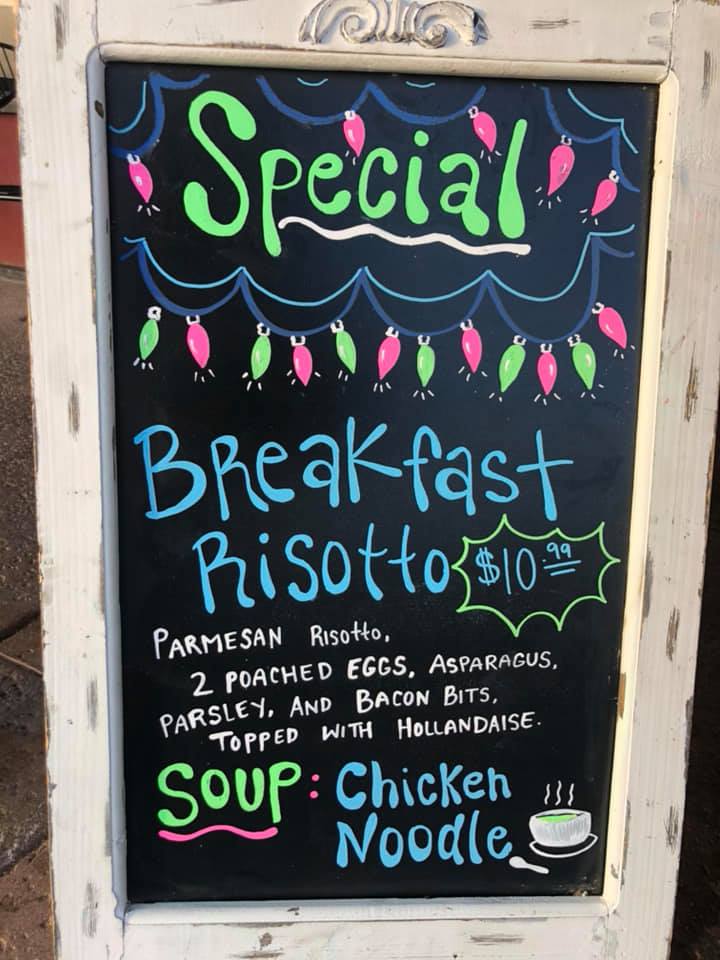 Special
Breakfast
Risotto $10.99
PARMESAN Risotto,
2 POACHED EGGS, ASPARAGUS,
PARSLEY, AND BACON BITS,
TOPPED WITH HOLLANDAISE.
SOUP: Chicken
Noodle